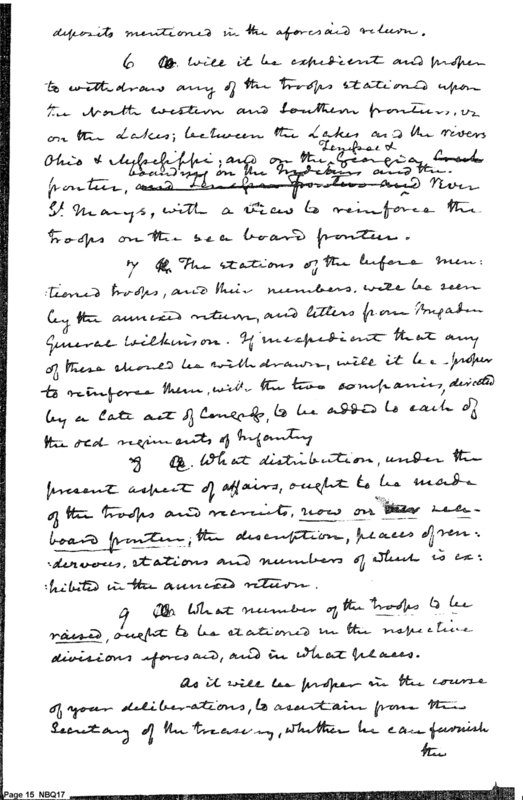 deposits mentioned in the aforesaid return.
6 Will it be expedient and proper
to withdraw any of the troops stationed upon
the North western and Southern frontiers, viz
on the Lakes; between the Lakes and the rivers
Tenessee &
Ohio & Mississippi; and on the Georgia Creek
bounding on the Indians and the
frontier, and Tenessee frontier and River
St. Marys, with a view to reinforce the
troops on the sea board frontier.
7 The stations of the before men:
:tioned troops, and their numbers, will be seen
by the annexed return, and letters from Brigadier
General Wilkinson. If inexpedient that any
of these should be withdrawn, will it be proper
to reinforce them, with the two companies, directed
by a late act of Congress, to be added to each of
the old regiments of Infantry
8 What distribution, under the
present aspect of affairs, ought to be made
of the troops and recruits, now on sea-
board frontier; the description, places of ren:
:dezvous, stations and numbers of which is ex:
:hibited in the annexed return.
9 What number of the troops to be
raised, ought to be stationed in the respective
divisions aforesaid, and in what places.
As it will be proper in the course
of your deliberations, to ascertain from the
Secretary of the treasury, whether he can furnish
the
Page 15 NBQ17